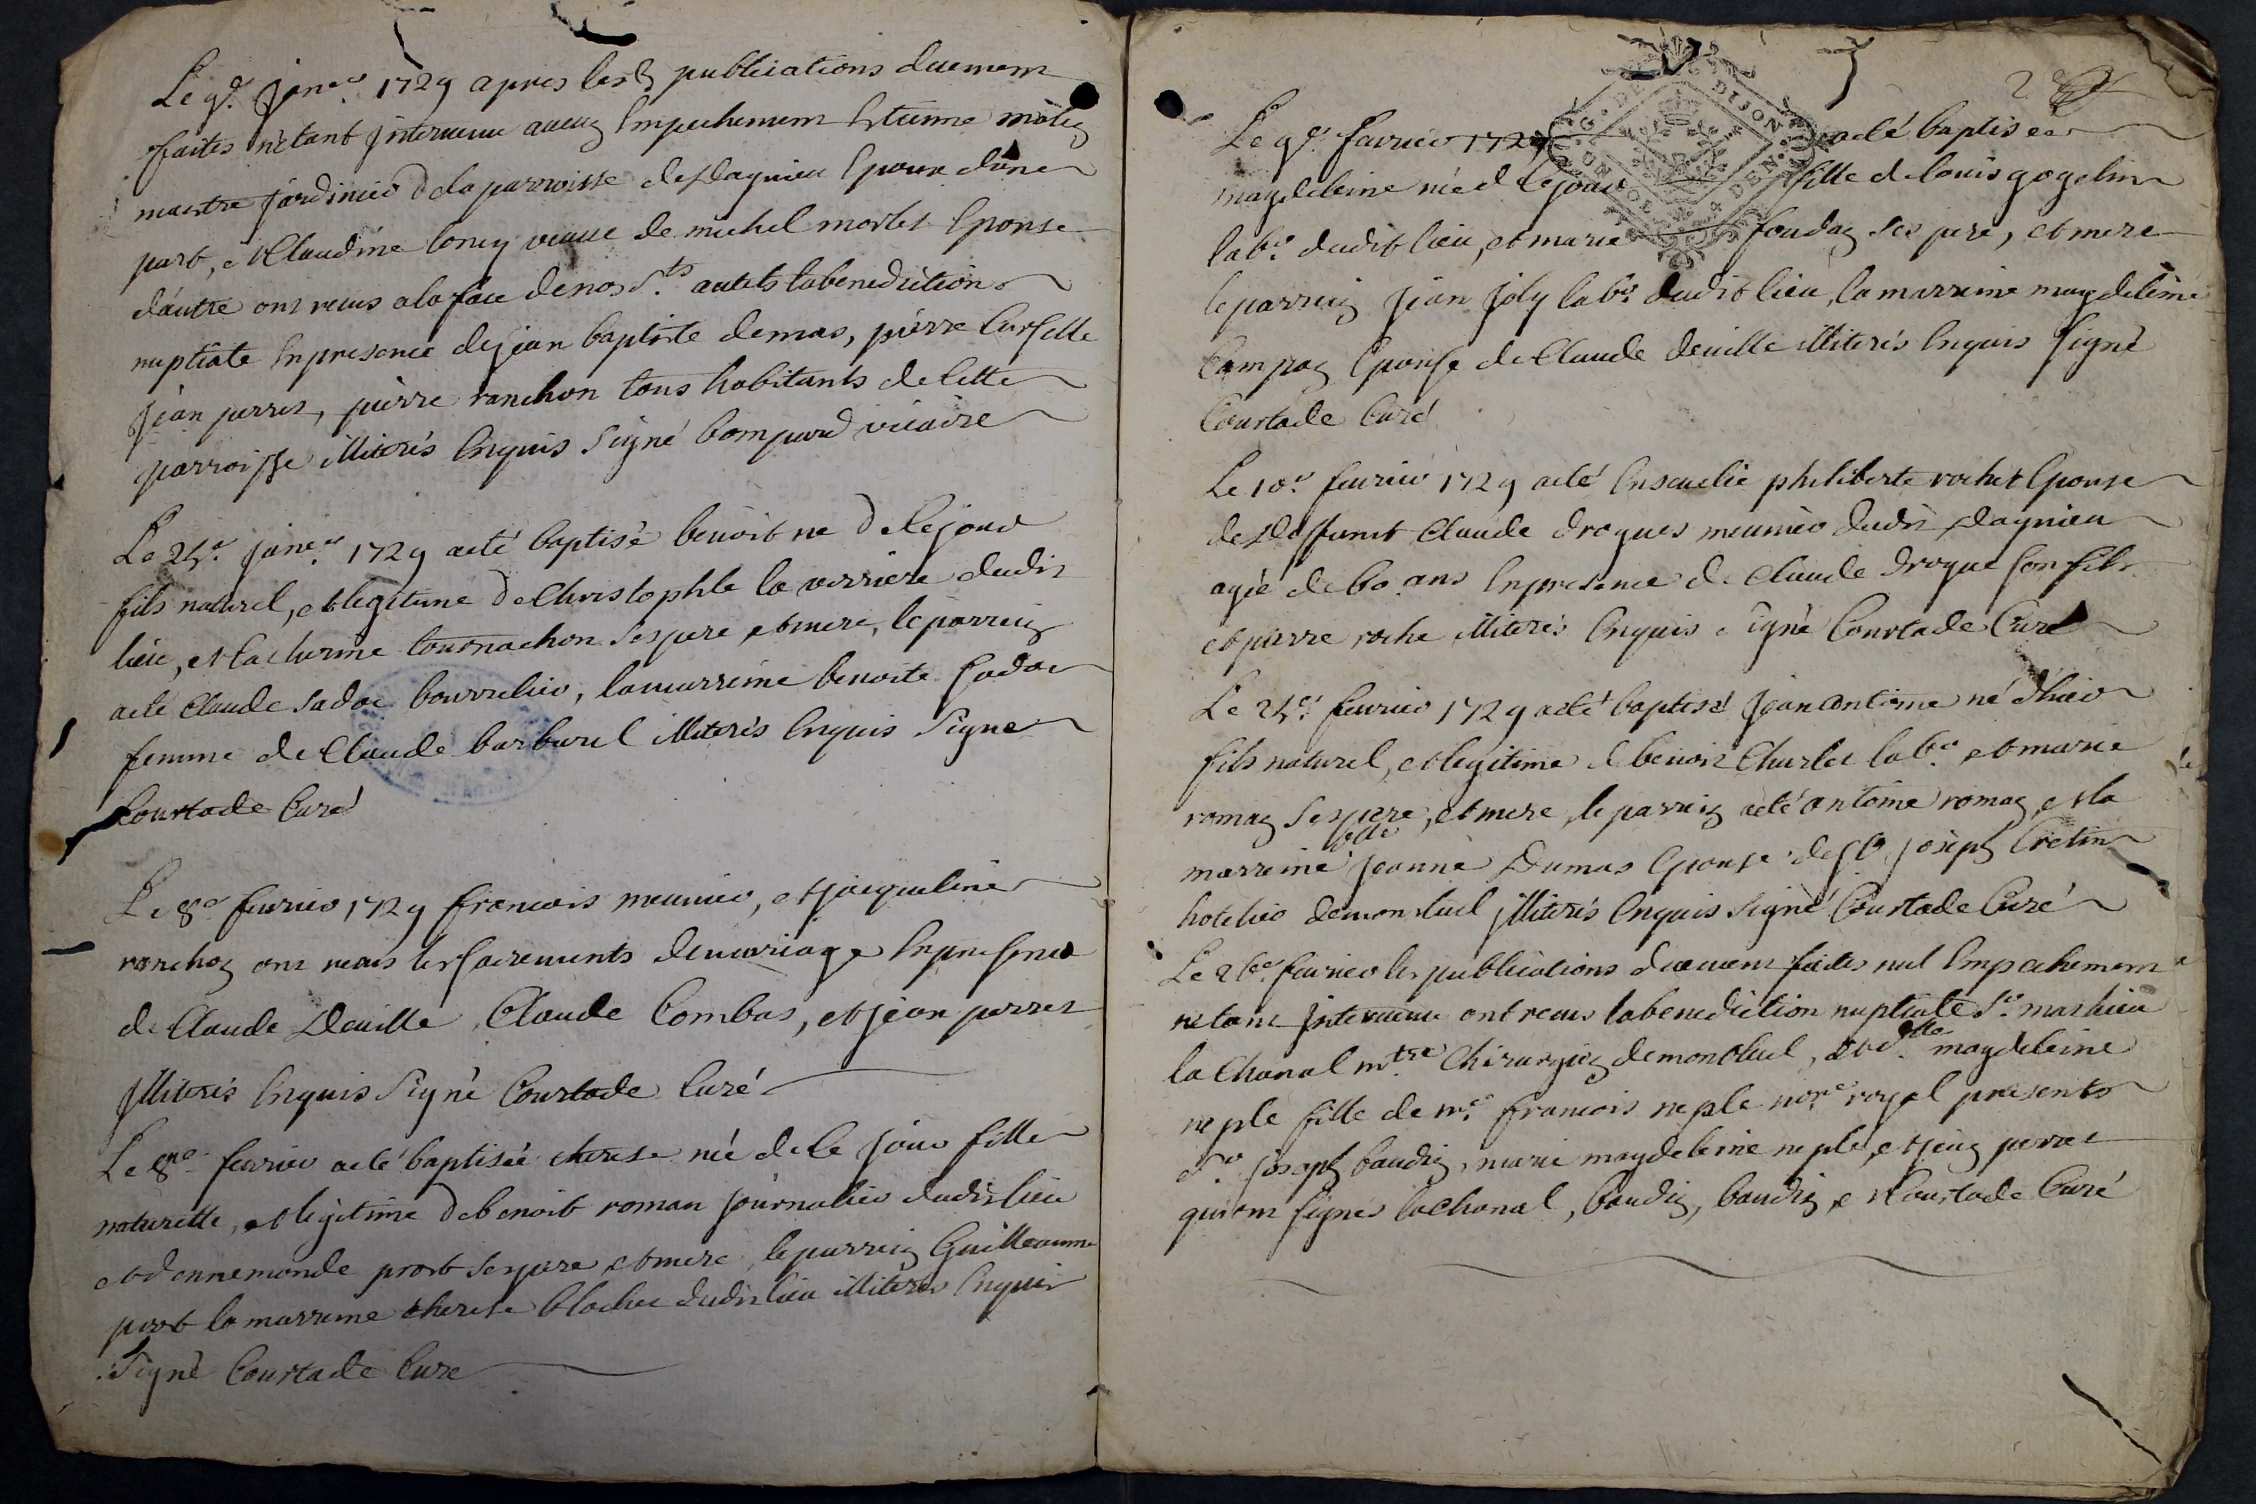 Le 9e. janer. 1729 apres les publications duement
faittes n'etant intervenu aucun Empechement Estienne
maistre jardinier de la parroisse de Dagnieu Epoux d'une
part, et Claudine veuve de michel morlet Epouse
d'autre ont reçus a la face de nos Sts. autels la benediction
nuptiale En presence de jean baptiste demas, pierre
jean perret, pierre ranchon tous habitants de cette
parroisse illiterés Enquis Signé vicaire
Le 24e. janer. 1729 a eté baptisé benoit né de ce jour
fils naturel, et legitime de Christophle la verriere dudit
lieu, et Catherine tournachon ses pere et mere, le parrein
a eté Claude Sadoc bourrelier, la marreine benoite Sadoc
femme de Claude barbarel illiterés Enquis Signé
Courtade Curé
Le 8e fevrier 1729 francois meunier, et jacqueline
ranchon ont reçus les sacrements de mariage En presence
de Claude Deville, Claude Combas, et jean perret
illiterés Enquis Signé Courtade Curé
Le 8me fevrier a eté baptiséé therese né de ce jour fille
naturelle, et legitime de benoit roman journalier dudit lieu
et donnemonde prost ses pere et mere, le parrein Guilleaume
prost la marreine therese blachet dudit lieu illiterés Enquis
Signé Courtade Curé
2e
Le 9e. favrier 1729 a eté baptisée
magdeleine née de ce jour fille de louis gogelin
labr. dudit lieu, et marie foudaz ses pere, et mere
le parrein jean joly labr. dudit lieu, la marreine magdeleine
Epouse de Claude deville illiterés Enquis Signé
Courtade Curé
Le 10e. fevrier 1729 a eté Ensevelie philiberte rochet Epouse
de Deffunt Claude drogues meunier dudit Dagnieu
agée de 60 ans En presence de Claude drogue son fils
et pierre roche illiterés Enquis signé Courtade Curé
Le 24e. fevrier 1729 a eté baptisé jean antoine né d'hier
fils naturel, et legitime de benoit Charlet labr. et marie
roman ses pere, et mere, le parrein a eté antoine roman, et la
marreine delle jeanne Dumas Epouse de Sr. joseph Cretin
hotelier de montluel illiterés Enquis Signé Courtade Curé
Le 26e. fevrier les publications duement faites nul Empechement
n'etant intervenu ont reçus la benediction nuptiale Sr. mathieu
la Chanal mtre Chirurgien de montluel, et dlle magdeleine
neple fille de mre. francois neple nore. royal presents
Sr. joseph baudin, marie magdeleine neple, et jean perret
qui ont signés laChanal, baudin, baudin, et Courtade Curé